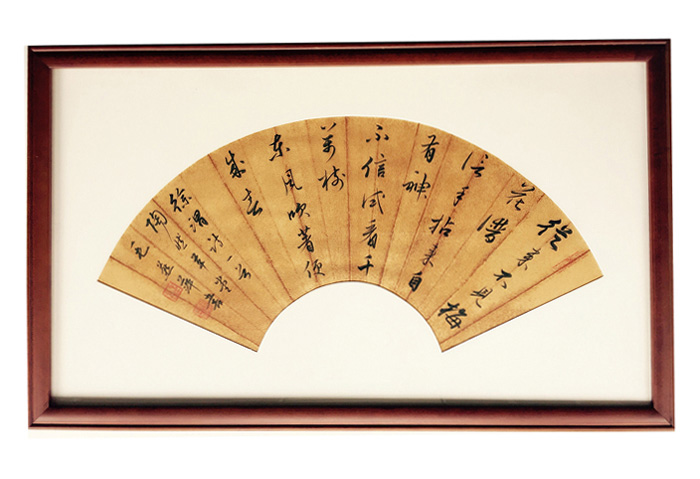 從來不見梅
花譜
信手拈來自
有神
不信試看千
萬樹
東風吹著便
成春
徐渭詩一首